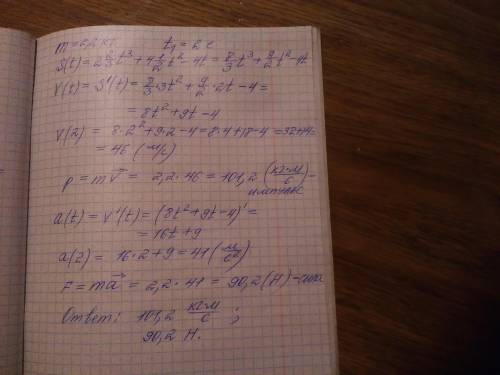 m = 2,2 кг. t₁ = 2 с
S(t) = 2 2/3 t³ + 4 1/2 t² - 4t = 8/3 t³ + 9/2 t² - 4t
V(t) = S'(t) = 8/3 · 3t² + 9/2 · 2t - 4 =
= 8t² + 9t - 4
V(2) = 8·2² + 9·2 - 4 = 8·4 + 18 - 4 = 32 + 14 =
= 46 (м/с)
p = mv⃗ = 2,2 · 46 = 101,2 (кг·м/с) -
импульс
a(t) = V'(t) = (8t² + 9t - 4)' =
= 16t + 9
a(2) = 16·2 + 9 = 41 (м/с²)
F = ma⃗ = 2,2 · 41 = 90,2 (Н) - сила
Ответ: 101,2 кг·м/с ;
90,2 Н.